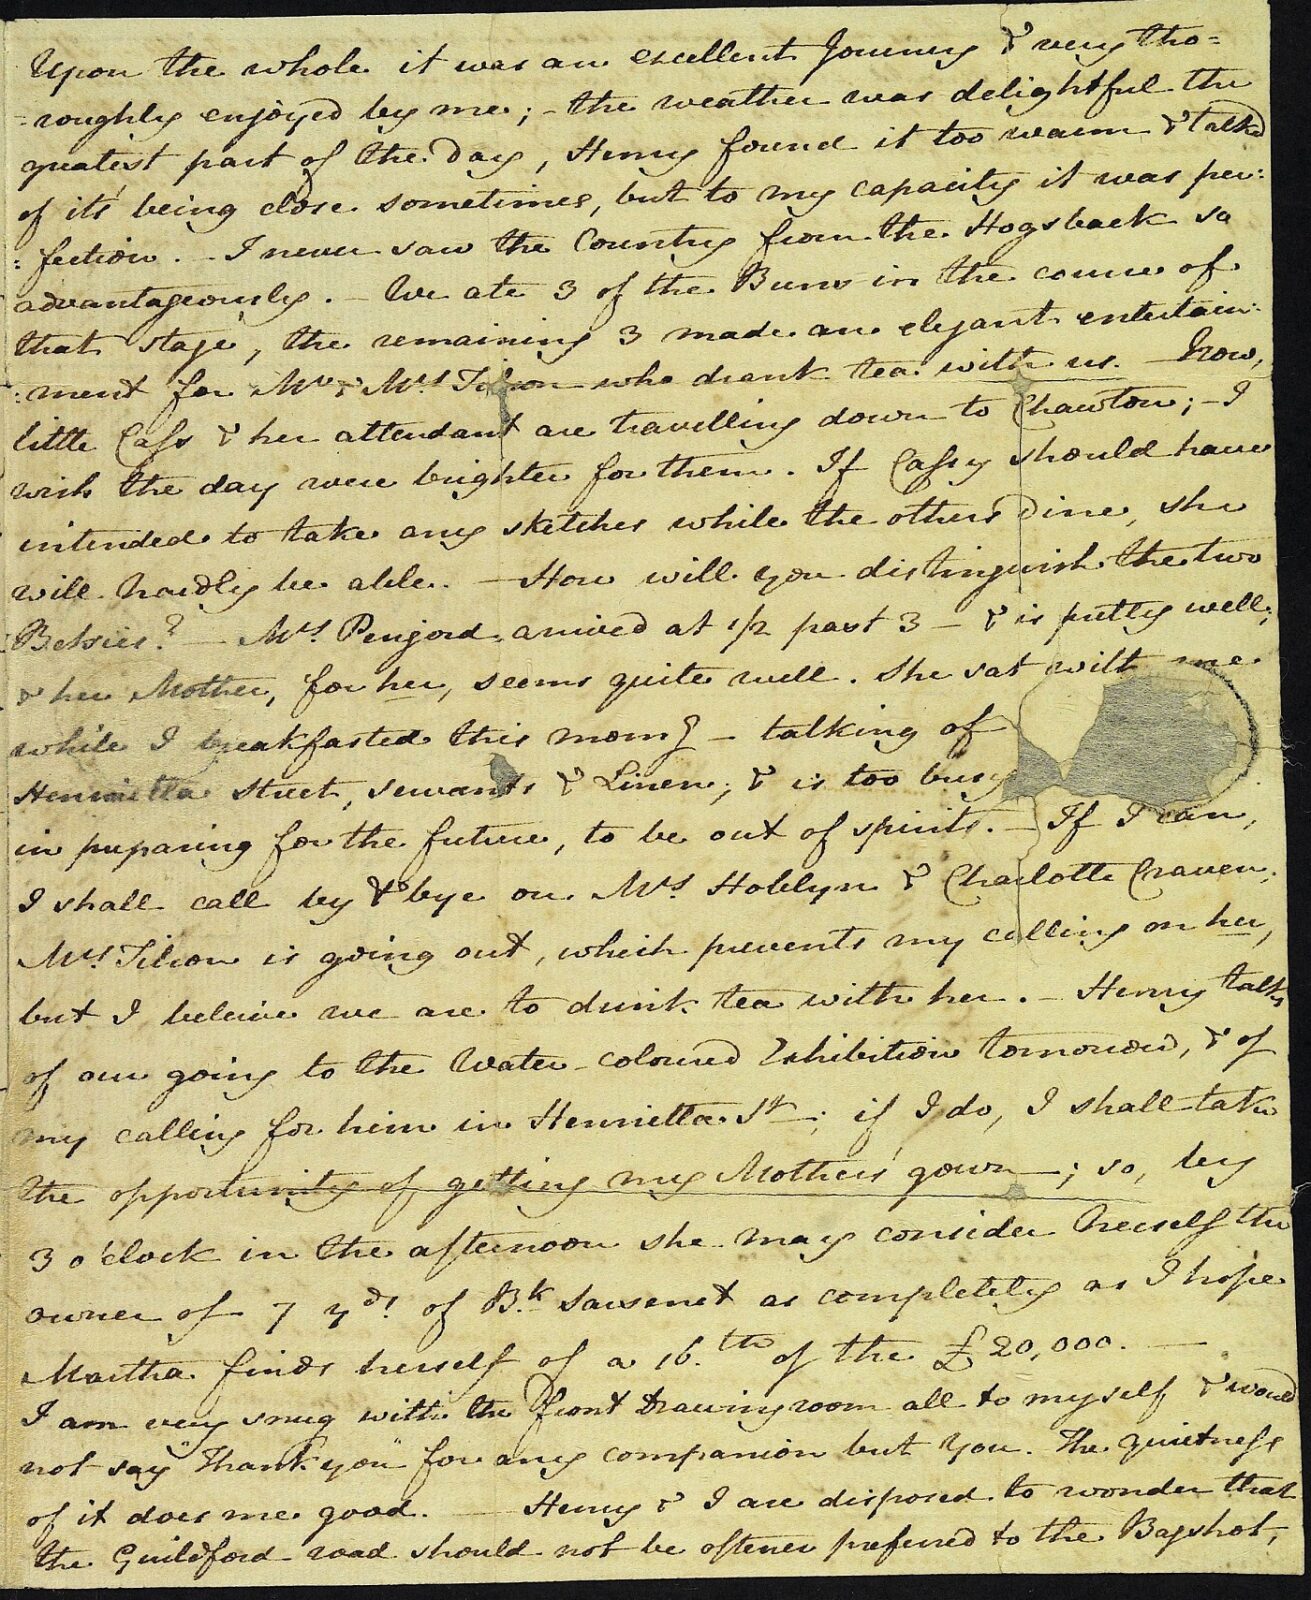 Upon the whole it was an excellent Journey & very tho=
=roughly enjoyed by me; – the weather was delightful the
greatest part of the day, Henry found it too warm & talked
of it's being close sometimes, but to my capacity it was per:
:fection. – I never saw the Country from the Hogsback so
advantageously. – We ate 3 of the Buns in the course of
that stage, the remaining 3 made an elegant entertain:
:ment for Mr & Mrs Tilson who drank tea with us. – Now,
little Cass & her attendant are travelling down to Chawton; – I
wish the day were brighter for them. If Cassy should have
intended to take any sketches while the others dine, she
will hardly be able. – How will you distinguish the two
Betsies? – Mrs Perigord arrived at 1/2 past 3 – & is pretty well,
& her Mother, for her, seems quite well. She sat with me
while I breakfasted this morng – talking of
Henrietta Street, servants & Linen, & is too busy
in preparing for the future, to be out of spirits. – If I can,
I shall call by & bye on Mrs Hoblyn & Charlotte Craven.
Mrs Tilson is going out, which prevents my calling on her,
but I beleive we are to drink tea with her. – Henry talks
of our going to the Water-coloured Exhibition tomorrow, & of
my calling for him in Henrietta St –; if I do, I shall take
the opportunity of getting my Mother's gown –; so, by
3 o'clock in the afternoon she may consider herself the
owner of 7 yds. of Bk. Sarsenet as completely as I hope
Martha finds herself of a 16.th of the £20,000. –
I am very snug with the front Drawingroom all to myself & would
not say "Thank you" for any companion but You. The quietness
of it does me good. – Henry & I are disposed to wonder that
the Guildford road should not be oftener preferred to the Bagshot,